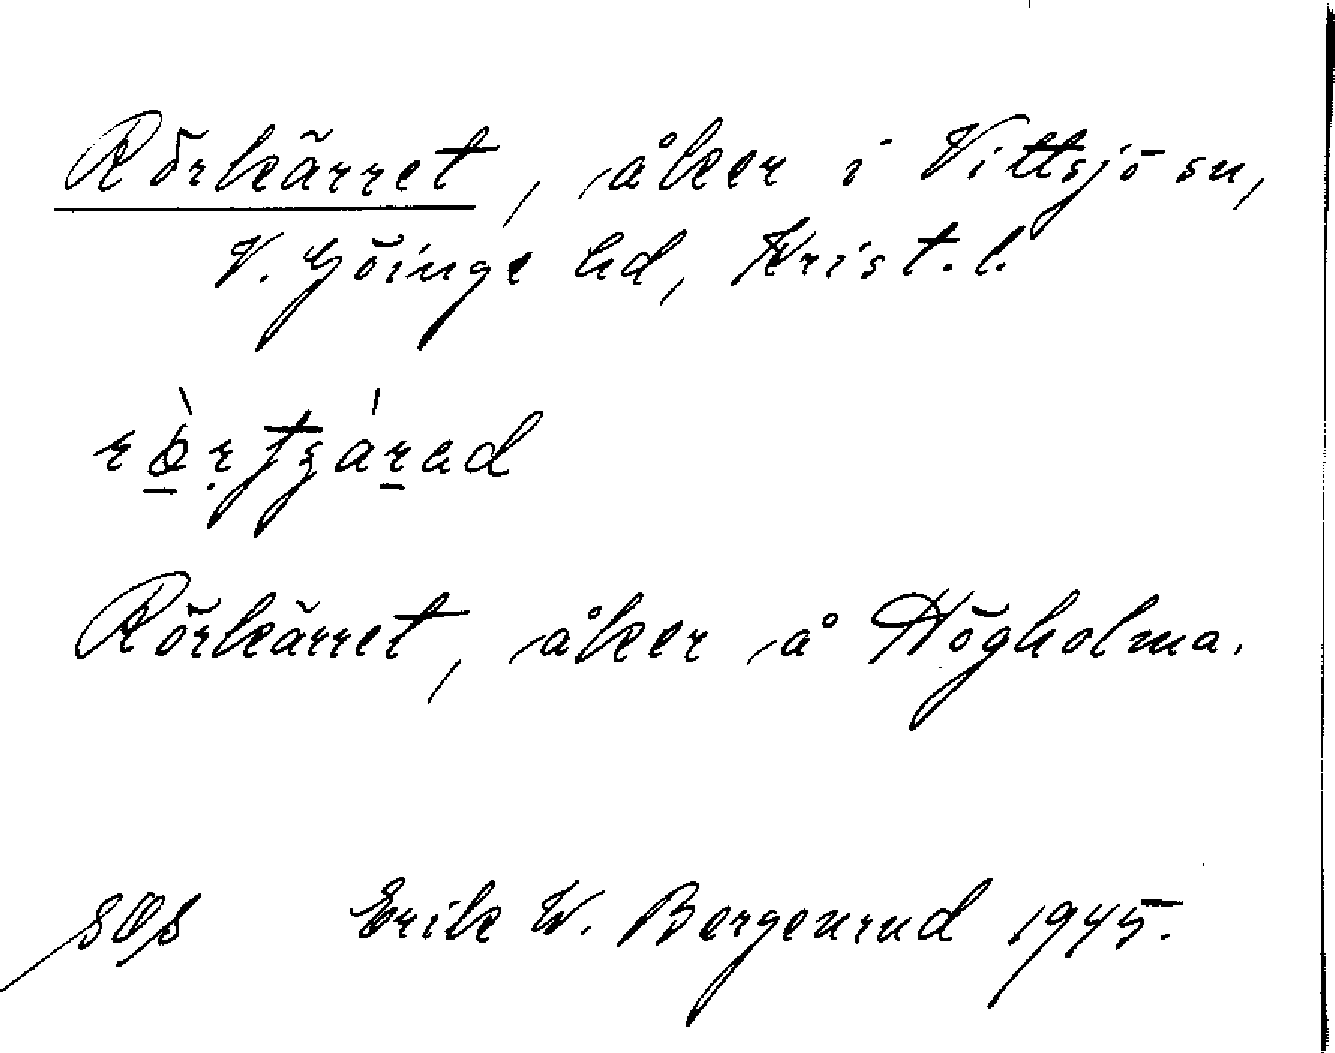 Rörkärret, åker i Vittsjö sn,
V. Göinge hd, Krist. l.
Rörkärret, åker å Högholma.
Erik W. Bergenrud 1945.